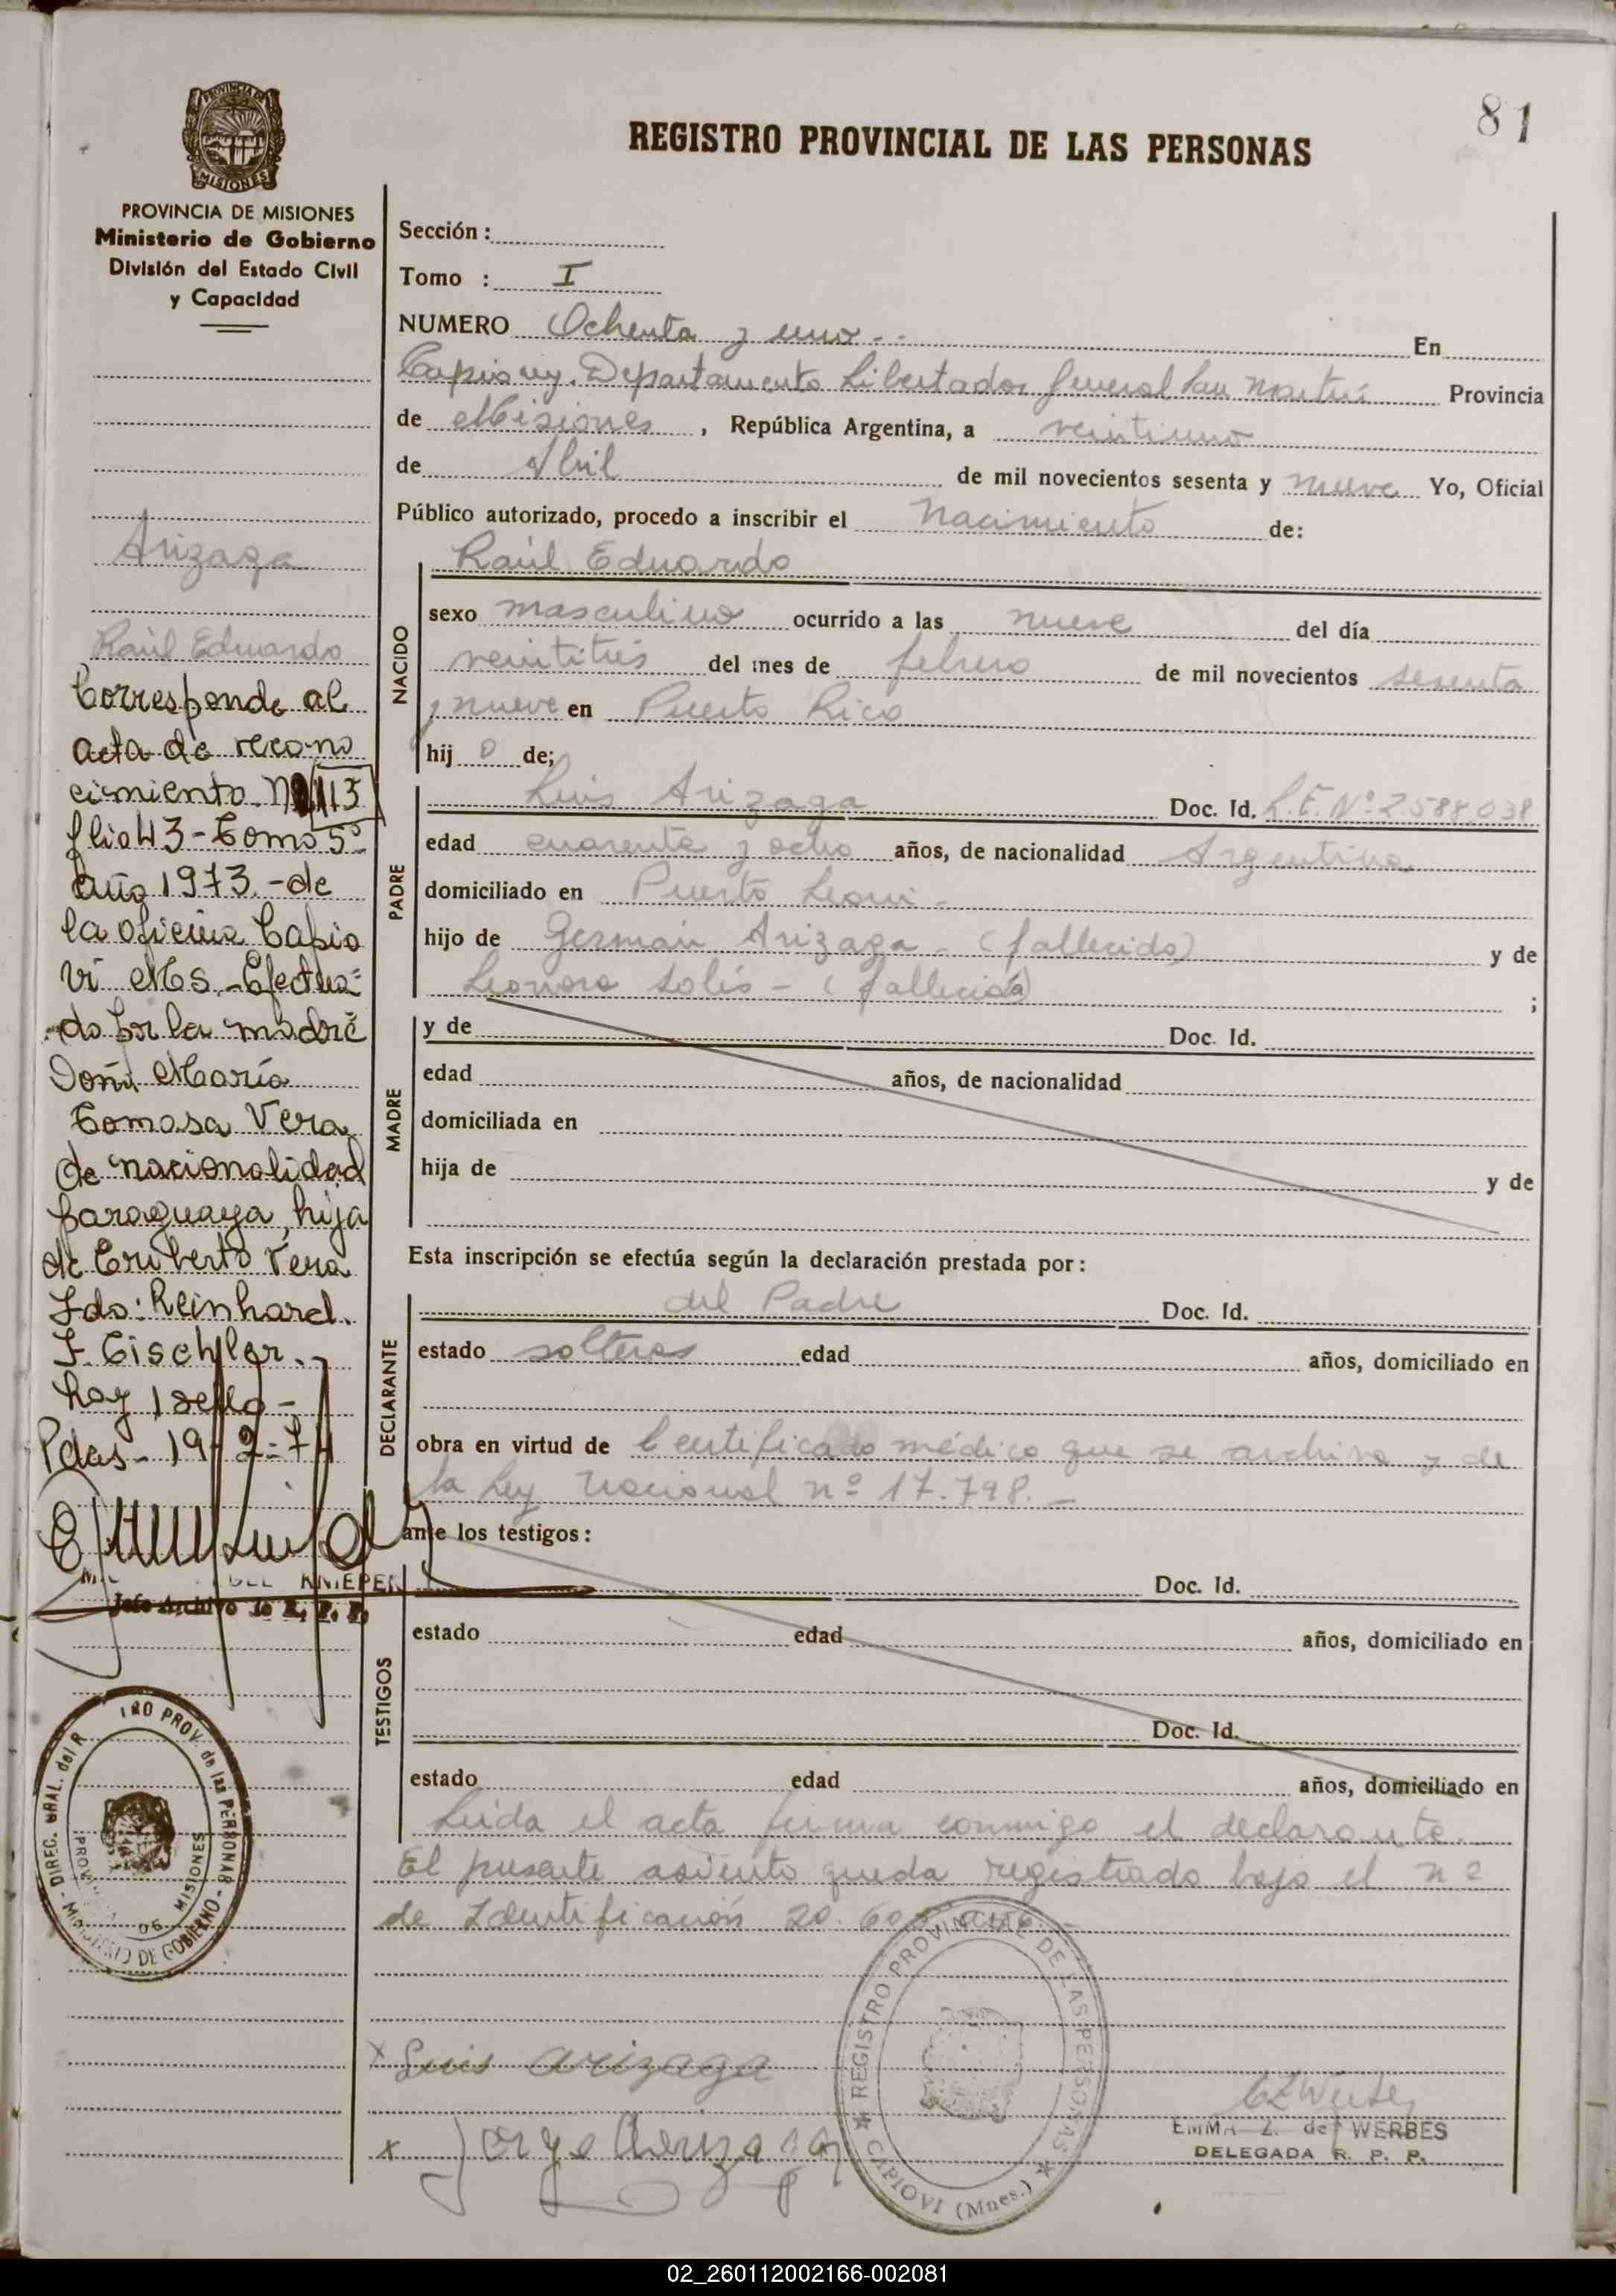 81
REGISTRO PROVINCIAL DE LAS PERSONAS
PROVINCIA DE MISIONES
Ministerio de Gobierno
División del Estado Civil
y Capacidad
Arizaga
Raúl Eduardo
Corresponde al
acta de recono
cimiento. Nº 113
flio 43 - Tomo 5º
año 1973.- de
la oficina Capio
vi Ms. - Efectua=
do por la madre
Doña María
Tomasa Vera
de nacionalidad
paraguaya, hija
de Eriberto Vera
Fdo: Reinhard.
F. Tischler.-
hay 1 sello -
Pdas - 19-2-74
KNIEPER
Jefe Archivo de R. P. P.
DIREC. GRAL. del R PROV. de las PERSONAS - MINISTERIO DE GOBIERNO
MISIONES
Sección :
Tomo : I
NUMERO Ochenta y uno - . En
Capiovy. Departamento Libertador General San Martín Provincia
de Misiones , República Argentina, a veintiuno
de Abril de mil novecientos sesenta y nueve Yo, Oficial
Público autorizado, procedo a inscribir el nacimiento de:
NACIDO
Raúl Eduardo
sexo masculino ocurrido a las nueve del día
veintitrés del mes de febrero de mil novecientos sesenta
y nueve en Puerto Rico
hij o de;
PADRE
Luis Arizaga Doc. Id. L.E. Nº 2.588.038
edad cuarenta y ocho años, de nacionalidad Argentina
domiciliado en Puerto Leoni -
hijo de Germán Arizaga - (fallecido) y de
Leonora Solis - (fallecida) ;
MADRE
y de Doc. Id.
edad años, de nacionalidad
domiciliada en
hija de y de
Esta inscripción se efectúa según la declaración prestada por :
DECLARANTE
del Padre Doc. Id.
estado soltero edad años, domiciliado en
obra en virtud de Certificado médico que se archiva y de
la Ley Nacional nº 17.798. -
ante los testigos :
TESTIGOS
Doc. Id.
estado edad años, domiciliado en
Doc. Id.
estado edad años, domiciliado en
Leída el acta firma conmigo el declarante.
El presente asiento queda registrado bajo el nº
de Identificación 20.60
REGISTRO PROVINCIAL DE LAS PERSONAS
CAPIOVI (Mnes.)
x Luis Arizaga
x Jorge Arizaga
EMMA Z. de WERBES
DELEGADA R. P. P.
02_260112002166-002081